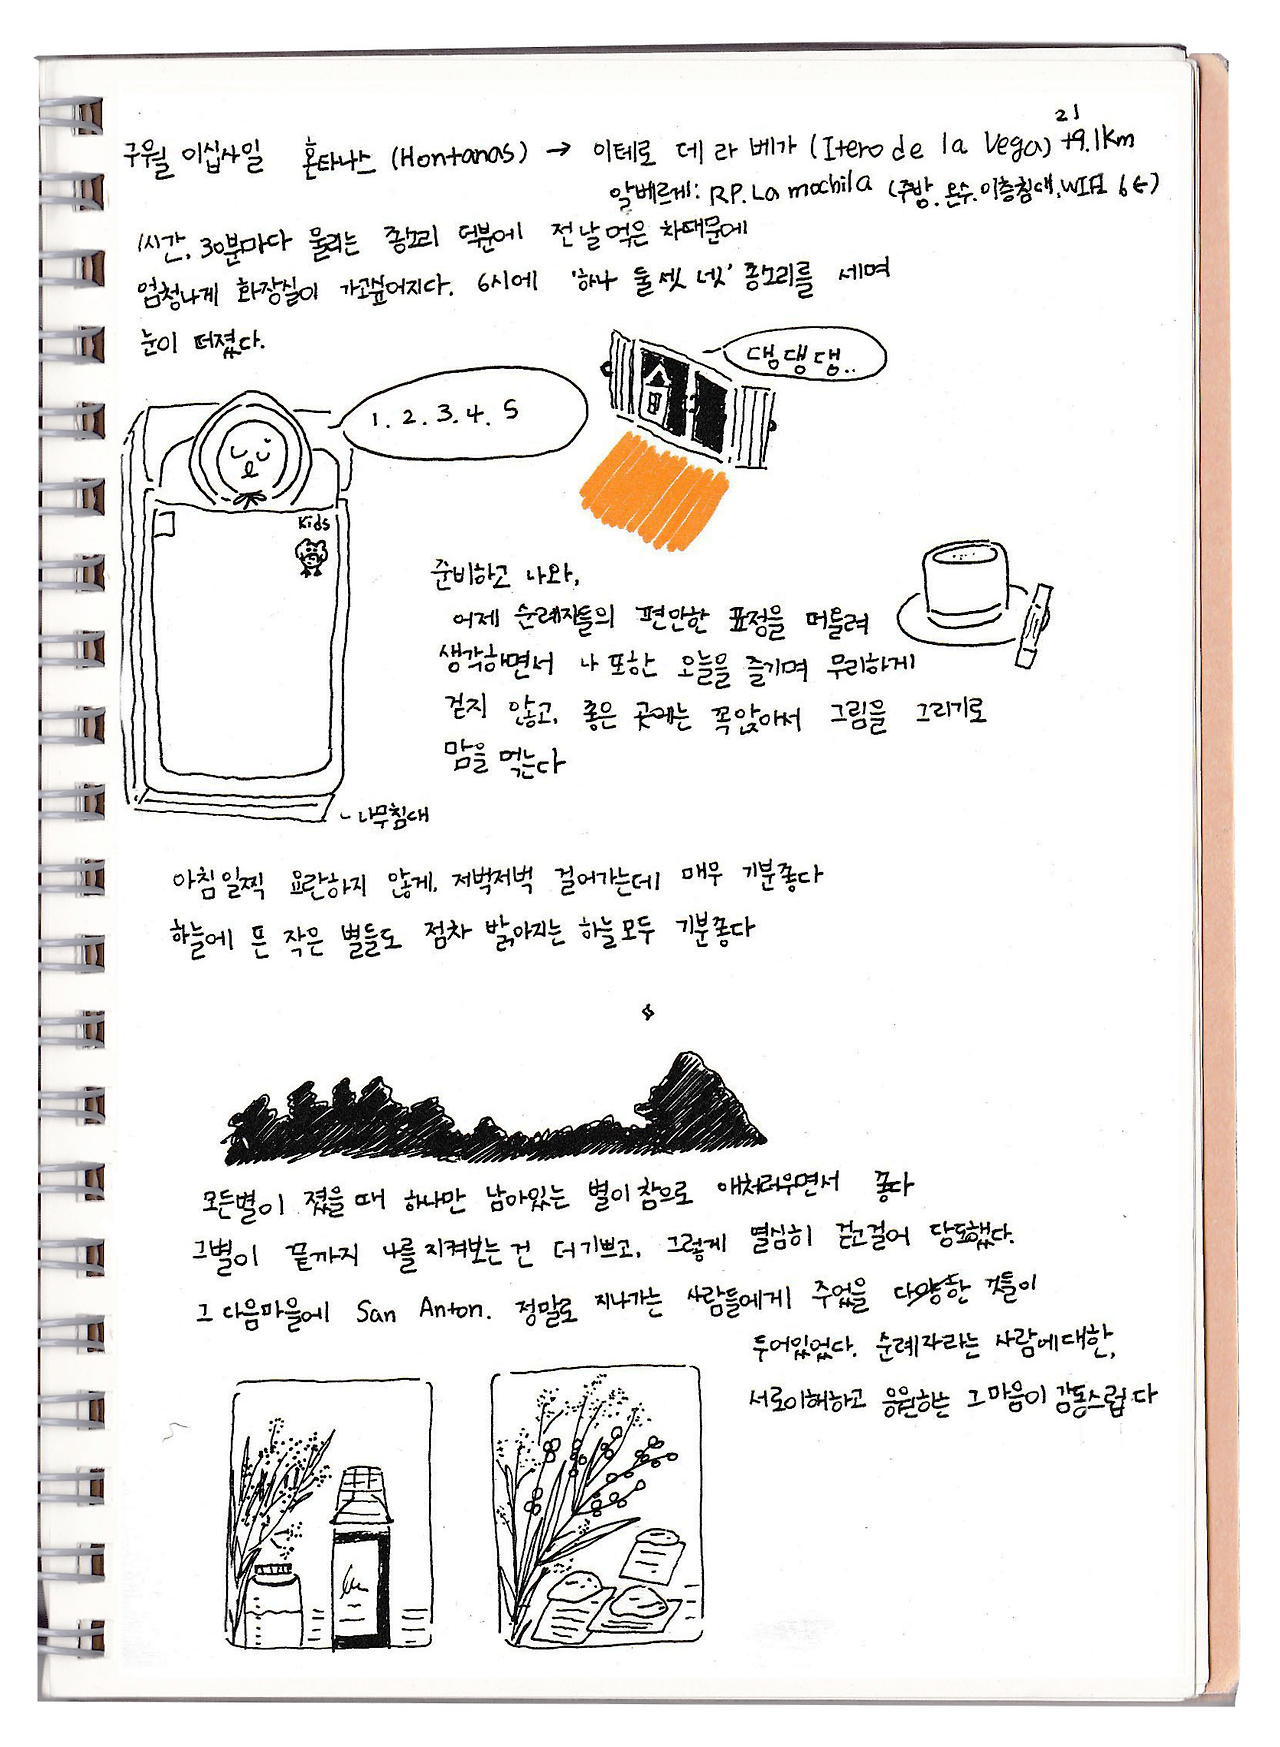 21
구월 이십사일 혼타나스 (Hontanas) → 이테로 데 라 베가 (Itero de la Vega) +9.1Km
알베르게: RP. La mochila (주방. 온수. 이층침대, WIFI 6€)
1시간, 30분마다 울리는 종소리 덕분에 전날 먹은 차때문에
엄청나게 화장실이 가고싶어지다. 6시에 '하나 둘 셋 넷' 종소리를 세며
눈이 떠졌다.
댕댕댕..
1. 2. 3. 4. 5
Kids
준비하고 나와,
어제 순례자들의 편안한 표정을 떠올려
생각하면서 나 또한 오늘을 즐기며 무리하게
걷지 않고, 좋은 곳에는 꼭 앉아서 그림을 그리기로
맘을 먹는다
- 나무침대
아침 일찍 요란하지 않게, 저벅저벅 걸어가는데 매우 기분좋다
하늘에 뜬 작은 별들도 점차 밝아지는 하늘 모두 기분좋다
모든별이 졌을 때 하나만 남아있는 별이 참으로 애처러우면서 좋다
그별이 끝까지 나를 지켜보는 건 더 기쁘고, 그렇게 열심히 걷고 걸어 당도했다.
그 다음마을에 San Anton. 정말로 지나가는 사람들에게 주었을 다양한 것들이
두어있었다. 순례자라는 사람에 대한,
서로이해하고 응원하는 그 마음이 감동스럽다